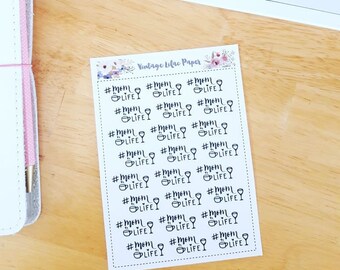 Vintage Lilac Paper
#mom #mom #mom
LIFE LIFE LIFE
#mom #mom #mom
LIFE LIFE LIFE
#mom #mom #mom
LIFE LIFE LIFE
#mom #mom #mom
LIFE LIFE LIFE
#mom #mom #mom
LIFE LIFE LIFE
#mom #mom #mom
LIFE LIFE LIFE
#mom #mom #mom
LIFE LIFE LIFE
#mom #mom #mom
LIFE LIFE LIFE